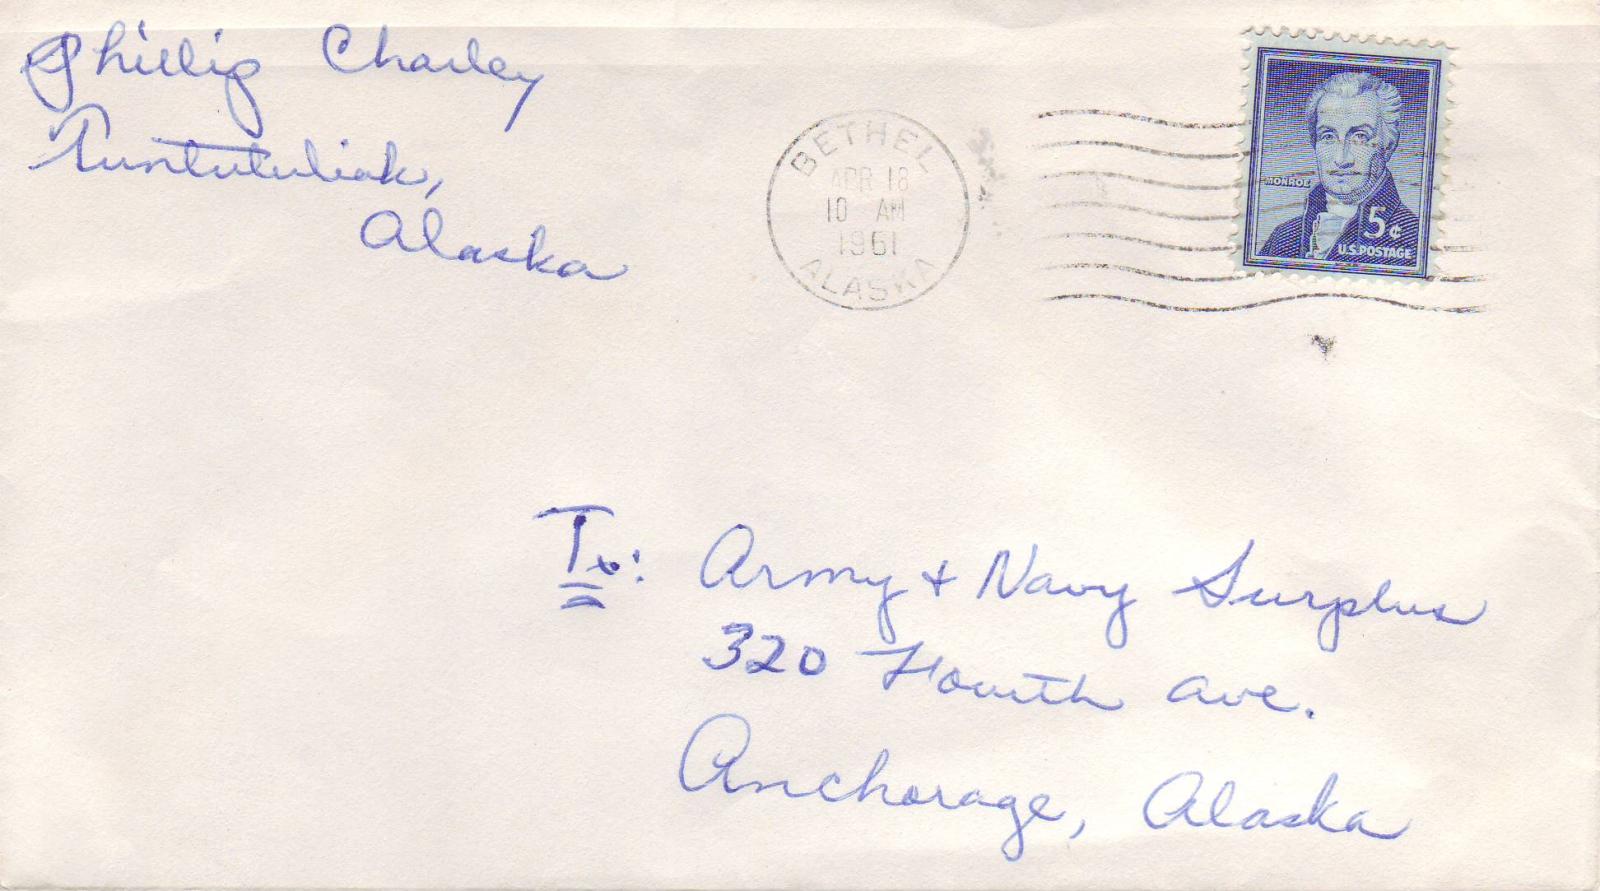 Phillip Charley
Tuntutuliak,
Alaska
BETHEL
APR 18
10 AM
1961
ALASKA
MONROE
5¢
U.S. POSTAGE
To: Army + Navy Surplus
320 Fourth Ave.
Anchorage, Alaska